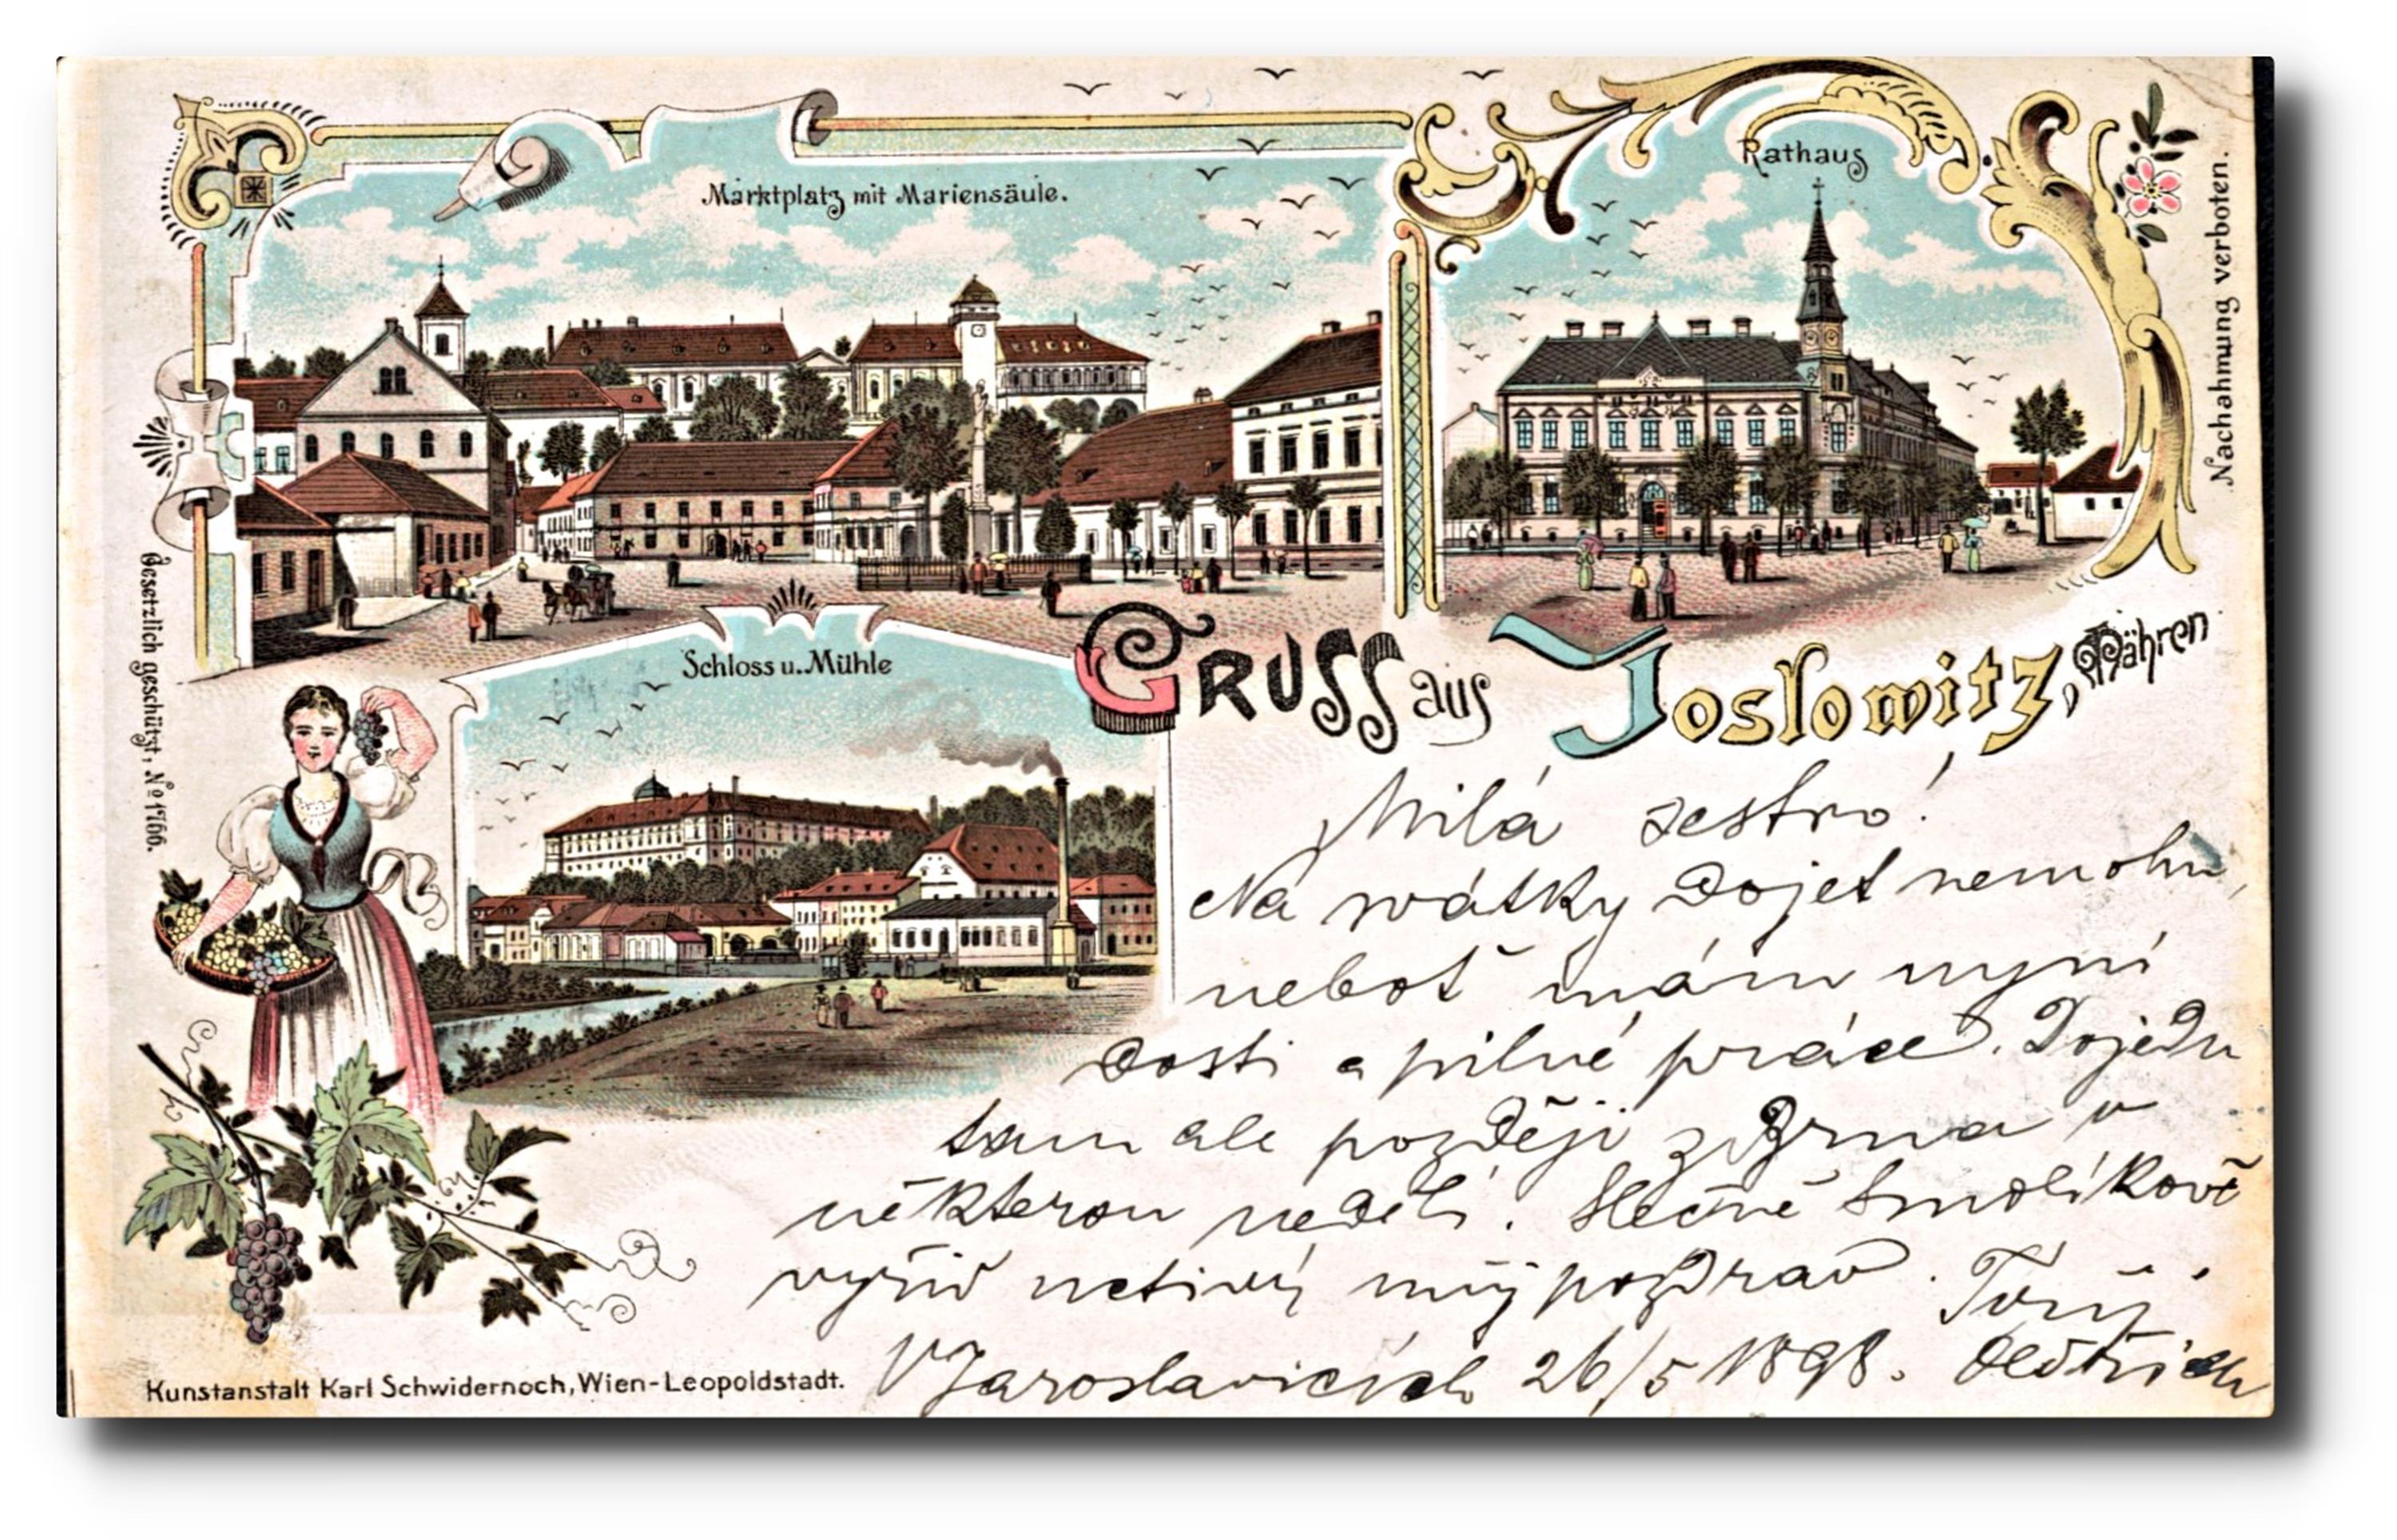 Marktplatz mit Mariensäule.
Rathaus
Nachahmung verboten.
Gesetzlich geschützt, No 1766.
Schloss u. Mühle
Gruss aus Joslowitz, Mähren
Milá sestro!
Na svátky dojet nemohu,
neboť mám nyní
dosti a pilné práce. Dojedu
tam ale později z Brna v
některou neděli. Slečně Smolíkově
vyřiď uctivý můj pozdrav. Tvůj
V Jaroslavicích 26/5 1898. Oldřich
Kunstanstalt Karl Schwidernoch, Wien-Leopoldstadt.